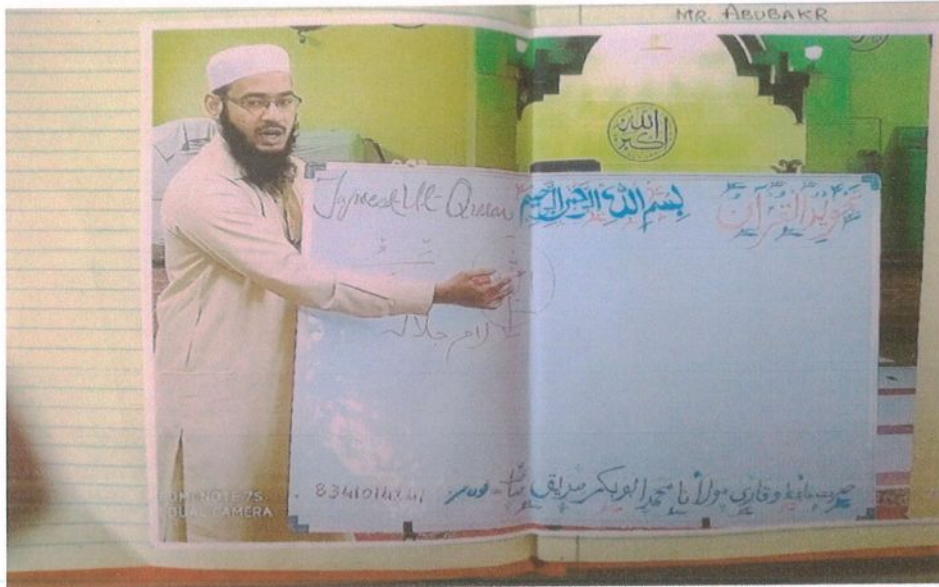 MR. ABUBAKR
الله اكبر
Tajweed Ul-Quran بسم الله الرحمن الرحيم تجويد القرآن
لام جلالہ
حضرت حافظ و قاری مولانا محمد ابوبکر صدیقی
REDMI NOTE 7S
DUAL CAMERA